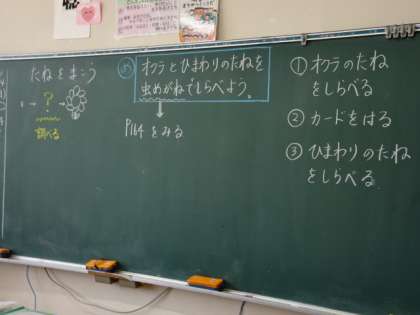 たねをまこう
?
調べる
め
オクラとひまわりのたねを
虫めがねでしらべよう。
P164をみる
① オクラのたね
をしらべる
② カードをはる
③ ひまわりのたね
をしらべる